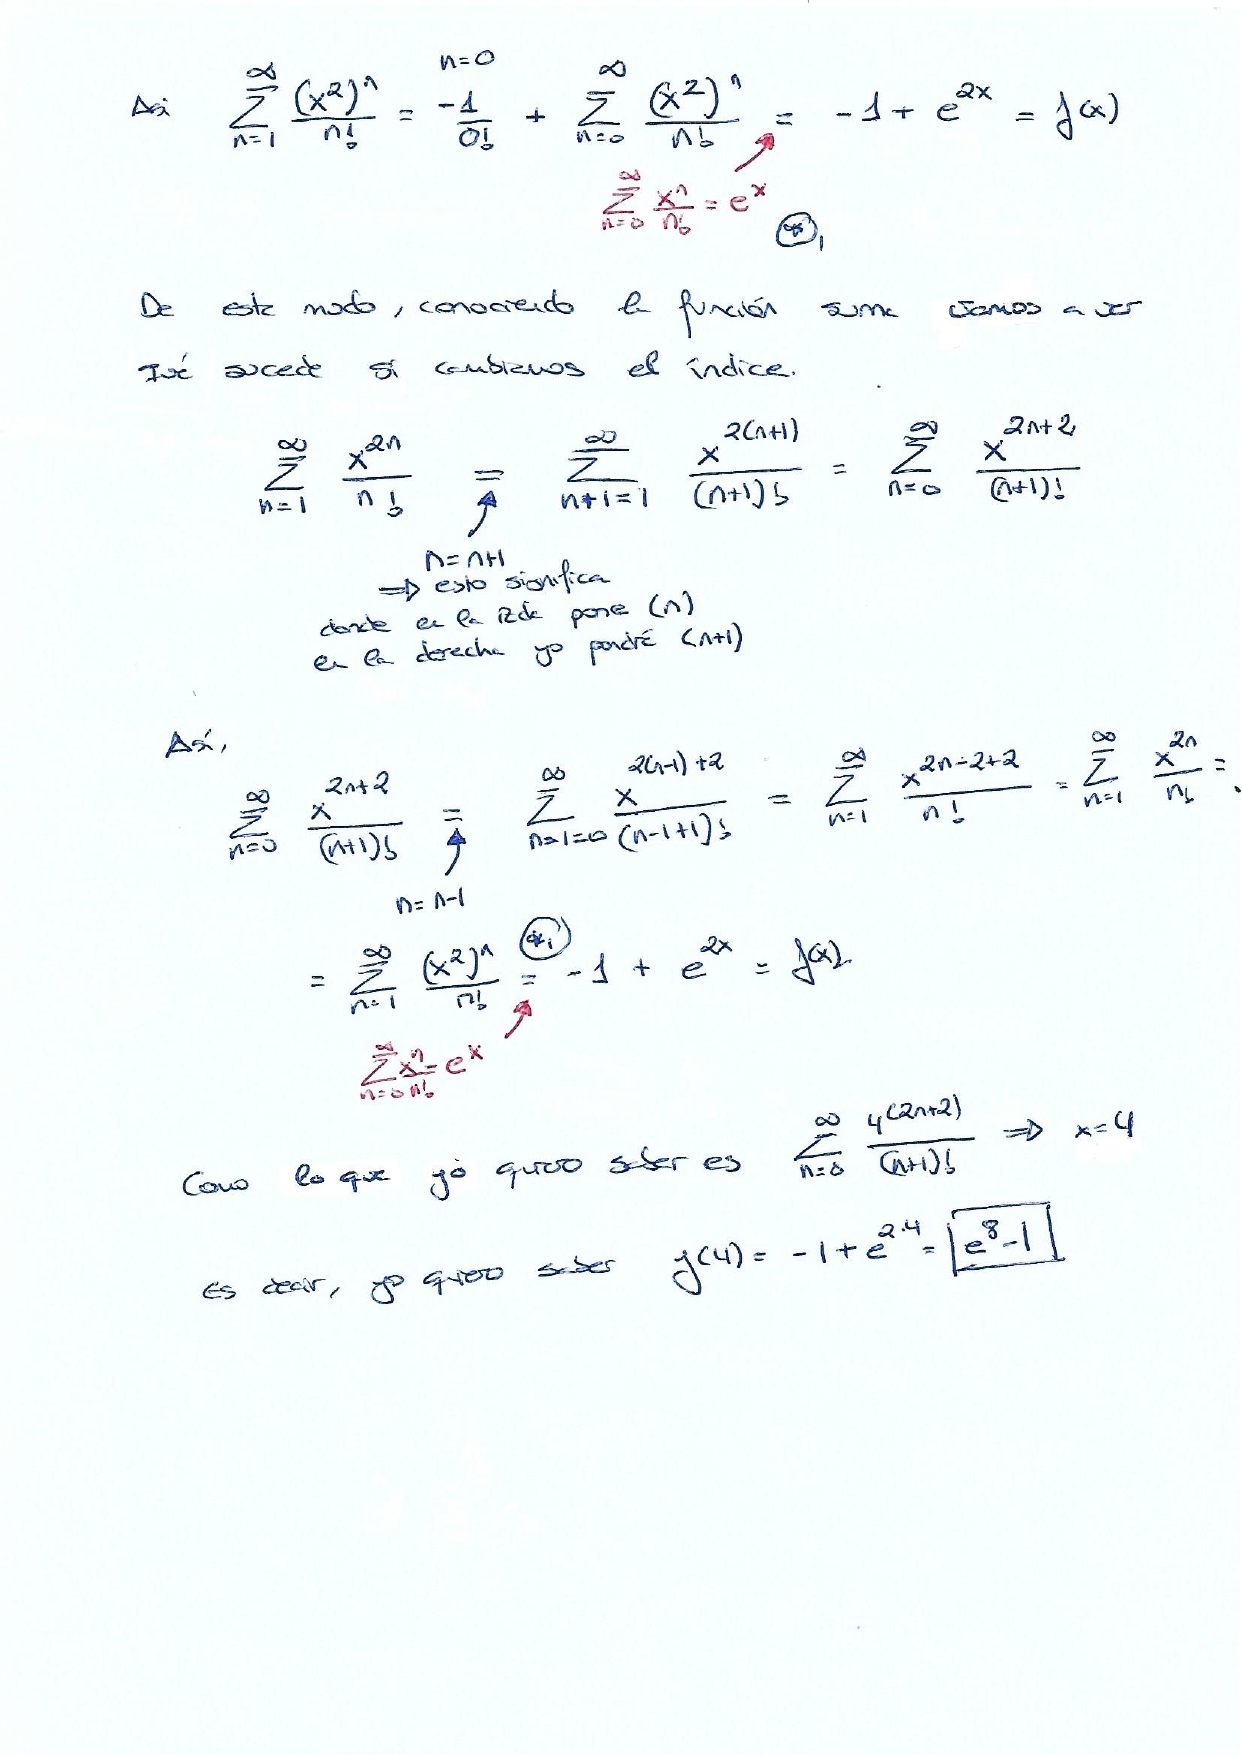 n=0
Así ∑_{n=1}^{∞} (x²)ⁿ/n! = -1/0! + ∑_{n=0}^{∞} (x²)ⁿ/n! = -1 + e^{2x} = f(x)
∑_{n=0}^{∞} xⁿ/n! = e^x
(*)₁
De este modo, conociendo la función suma vamos a ver
qué sucede si cambiamos el índice.
∑_{n=1}^{∞} x^{2n}/n! = ∑_{n+1=1}^{∞} x^{2(n+1)}/(n+1)! = ∑_{n=0}^{∞} x^{2n+2}/(n+1)!
n=n+1
⇒ esto significa
donde en la izda pone (n)
en la derecha yo pondré (n+1)
Así,
∑_{n=0}^{∞} x^{2n+2}/(n+1)! = ∑_{n-1=0}^{∞} x^{2(n-1)+2}/(n-1+1)! = ∑_{n=1}^{∞} x^{2n-2+2}/n! = ∑_{n=1}^{∞} x^{2n}/n! =
n=n-1
= ∑_{n=1}^{∞} (x²)ⁿ/n! =^{(*₁)} -1 + e^{2x} = f(x)
∑_{n=0}^{∞} xⁿ/n! = e^x
Como lo que yo quiero saber es ∑_{n=0}^{∞} 4^{(2n+2)}/(n+1)! ⇒ x=4
es decir, yo quiero saber f(4) = -1+e^{2·4} = e⁸-1